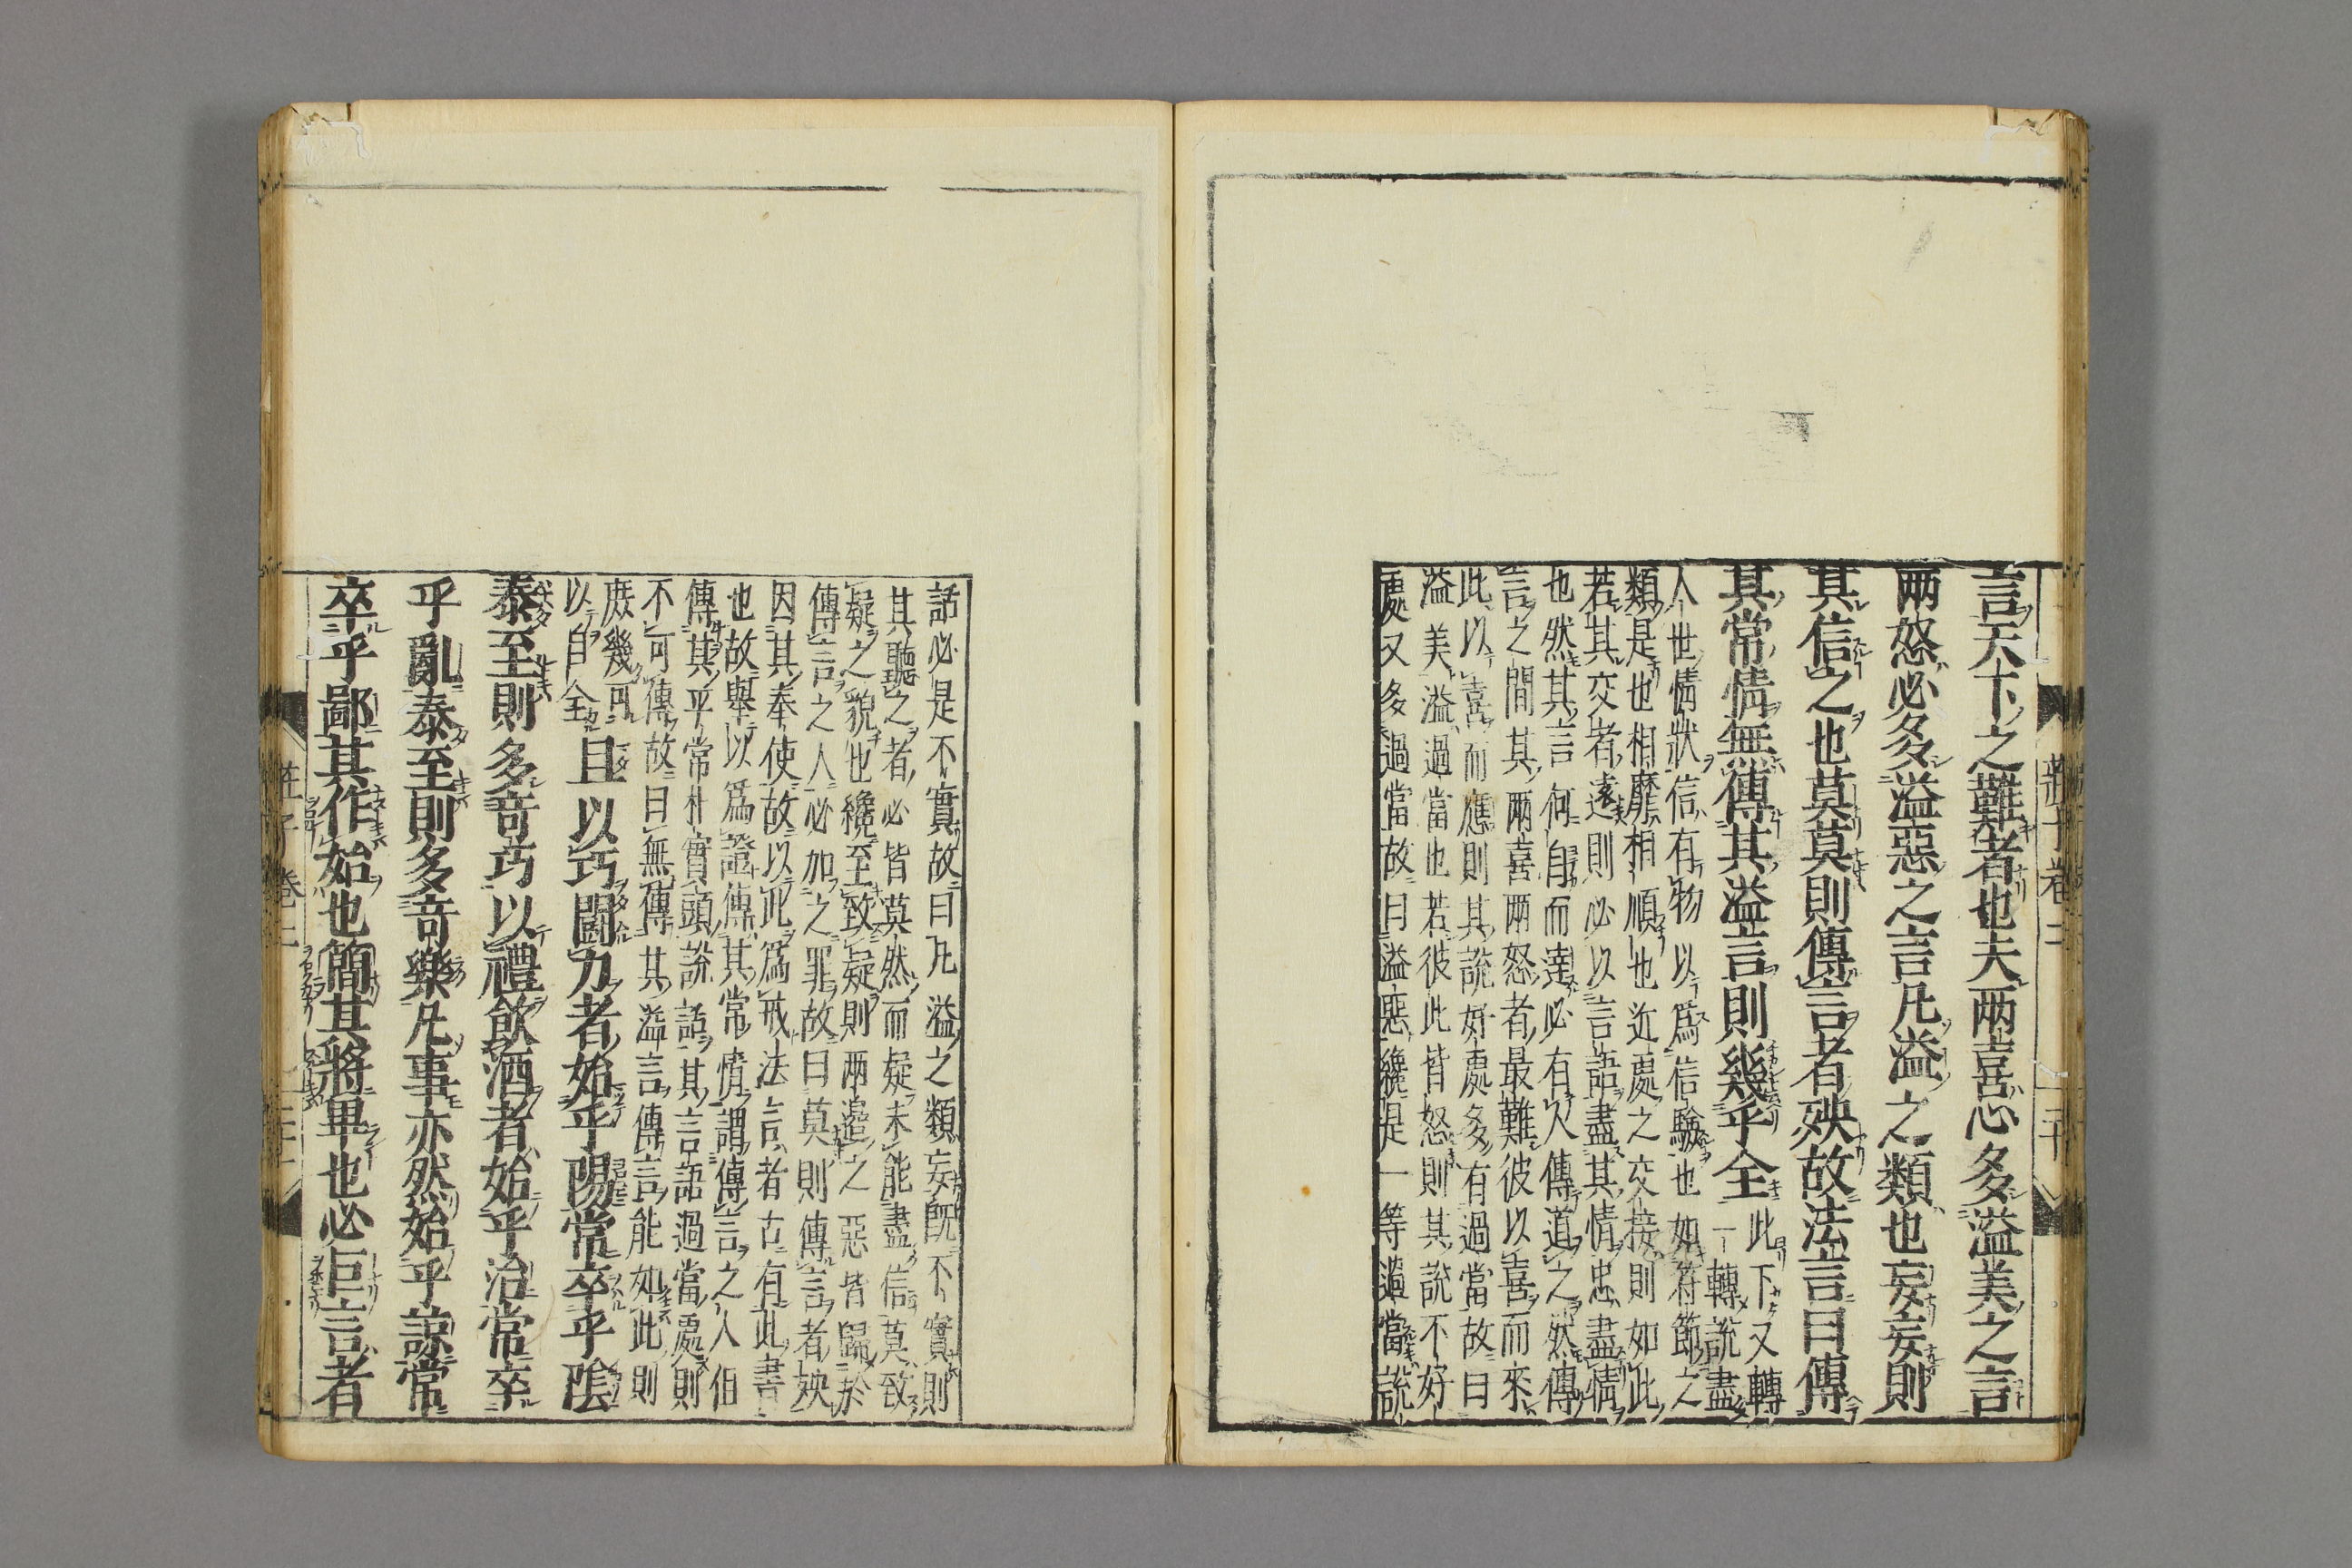 言天下之難者也夫兩喜必多溢美之言
兩怒必多溢惡之言凡溢之類也妄妄則
其信之也莫莫則傳言者殃故法言曰傳
其常情無傳其溢言則幾乎全
此下又轉
一轉說盡
人世情狀信有物以爲信驗也如符節之
類是也相靡相順也近處之交接則如此
若其交者遠則必以言語盡其情忠盡情
也然其言何自而達必有人傳道之然傳
言之間其兩喜兩怒者最難彼以喜而來
此以喜而應則其說好處多有過當故曰
溢美溢過當也若彼此皆怒則其說不好
處又多過當故曰溢惡纔是一等過當說
話必是不實故曰凡溢之類妄既不實則
其聽之者必皆莫然而疑未能盡信莫致
疑之貌也纔至致疑則兩邊之惡皆歸於
傳言之人必加之罪故曰莫則傳言者殃
因其奉使故以此爲戒法言者古有此書
也故舉以爲證傳其常情謂傳言之人但
傳其平常朴實頭說話其言語過當處則
不可傳故曰無傳其溢言傳言能如此則
庶幾可
以自全
且以巧鬪力者始乎陽常卒乎陰
泰至則多奇巧以禮飮酒者始乎治常卒
乎亂泰至則多奇樂凡事亦然始乎諒常
卒乎鄙其作始也簡其將畢也必巨言者
莊子卷二
莊子卷二